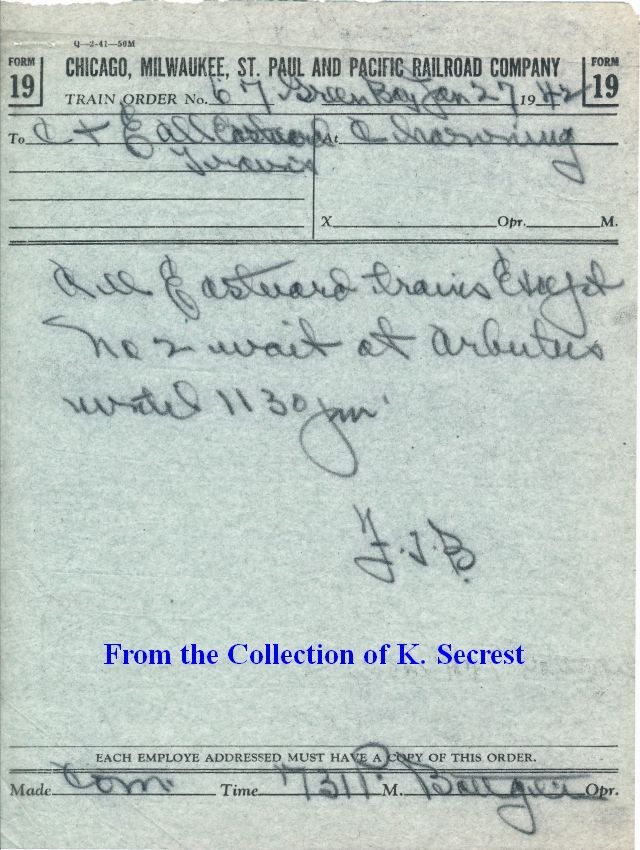 Q—2-41—50M
FORM 19 CHICAGO, MILWAUKEE, ST. PAUL AND PACIFIC RAILROAD COMPANY FORM 19
TRAIN ORDER No. 67 Green Bay Jan 27 1942
To C + E all Eastward At Channing
Trains
X Opr. M.
All Eastward trains Except
No 2 wait at Arbutus
until 1130 pm
F.J.B.
From the Collection of K. Secrest
EACH EMPLOYE ADDRESSED MUST HAVE A COPY OF THIS ORDER.
Made Com Time 731P M. Opr.